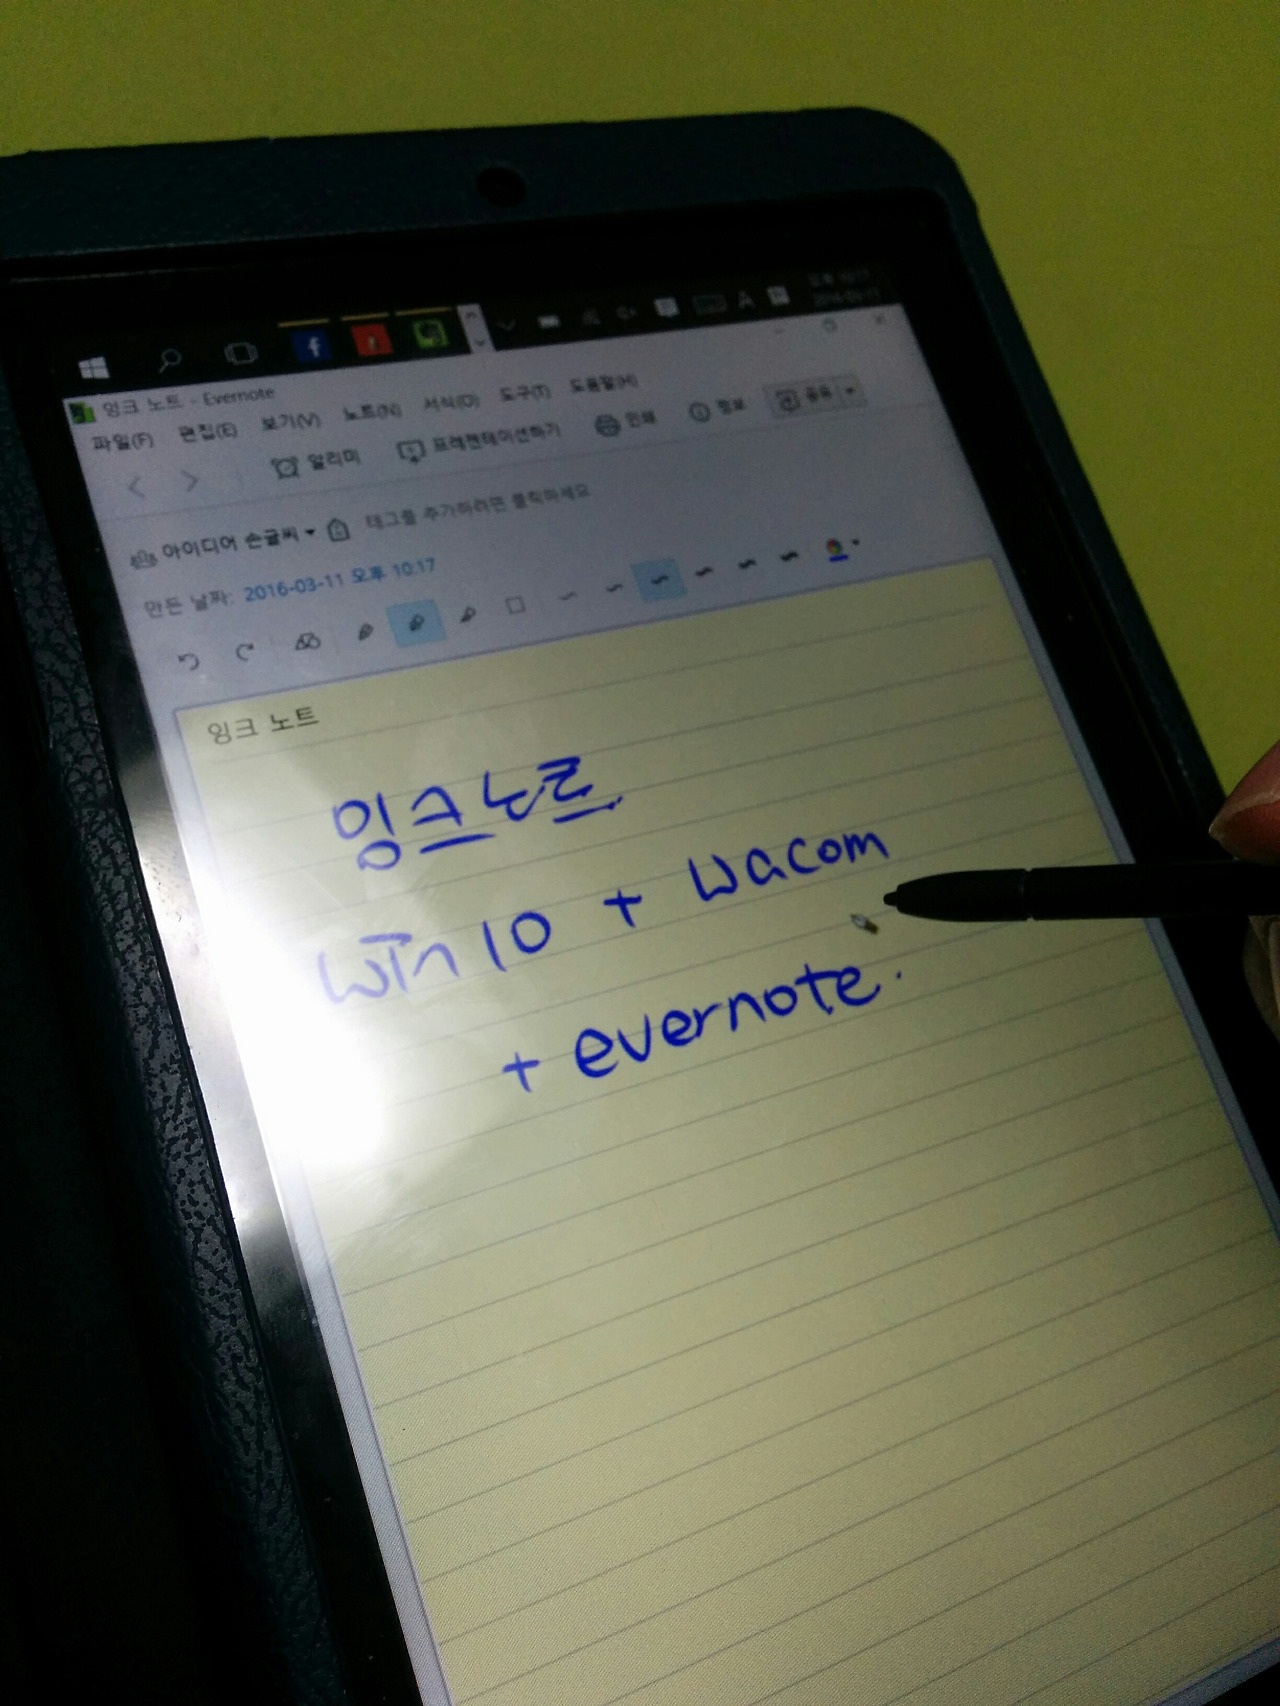 오후 10:17
2016-03-11
잉크 노트 - Evernote
파일(F) 편집(E) 보기(V) 노트(N) 서식(O) 도구(T) 도움말(H)
알리미 프레젠테이션하기 인쇄 정보 공유
아이디어 손글씨 태그를 추가하려면 클릭하세요
만든 날짜: 2016-03-11 오후 10:17
잉크 노트
잉크노트
win 10 + wacom
+ evernote.